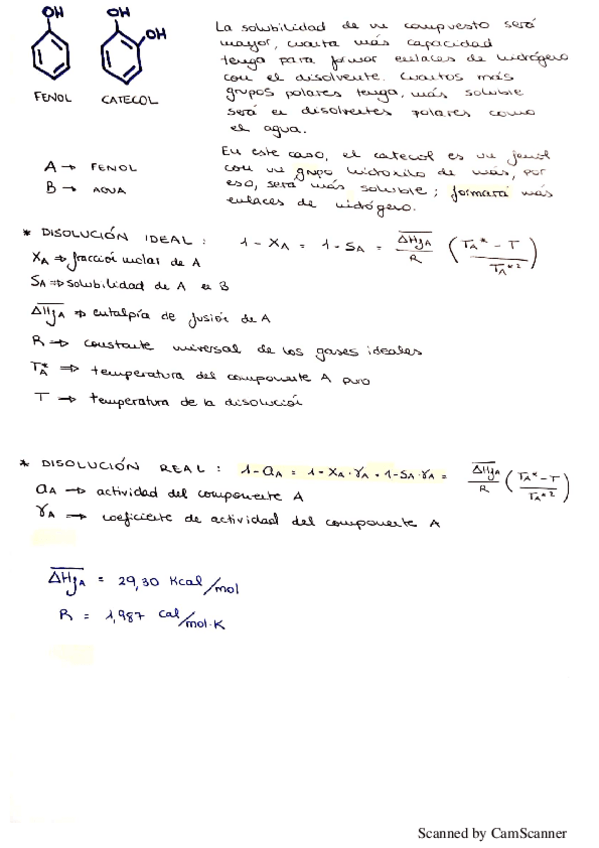 OH
OH
OH
FENOL
CATECOL
La solubilidad de un compuesto será
mayor, cuanta más capacidad
tenga para formar enlaces de hidrógeno
con el disolvente. Cuantos más
grupos polares tenga, más soluble
será en disolventes polares como
el agua.
En este caso, el catecol es un fenol
con un grupo hidroxilo de más, por
eso, será más soluble; formará más
enlaces de hidrógeno.
A → FENOL
B → AGUA
* DISOLUCIÓN IDEAL: 1 - XA = 1 - SA = ΔHfA/R (TA* - T / TA*²)
XA ⇒ fracción molar de A
SA ⇒ solubilidad de A en B
ΔHfA ⇒ entalpía de fusión de A
R → constante universal de los gases ideales
TA* ⇒ temperatura del componente A puro
T → temperatura de la disolución
* DISOLUCIÓN REAL: 1 - aA = 1 - XA · γA = 1 - SA · γA = ΔHfA/R (TA* - T / TA*²)
aA → actividad del componente A
γA → coeficiente de actividad del componente A
ΔHfA = 29,30 Kcal/mol
R = 1,987 cal/mol·K
Scanned by CamScanner